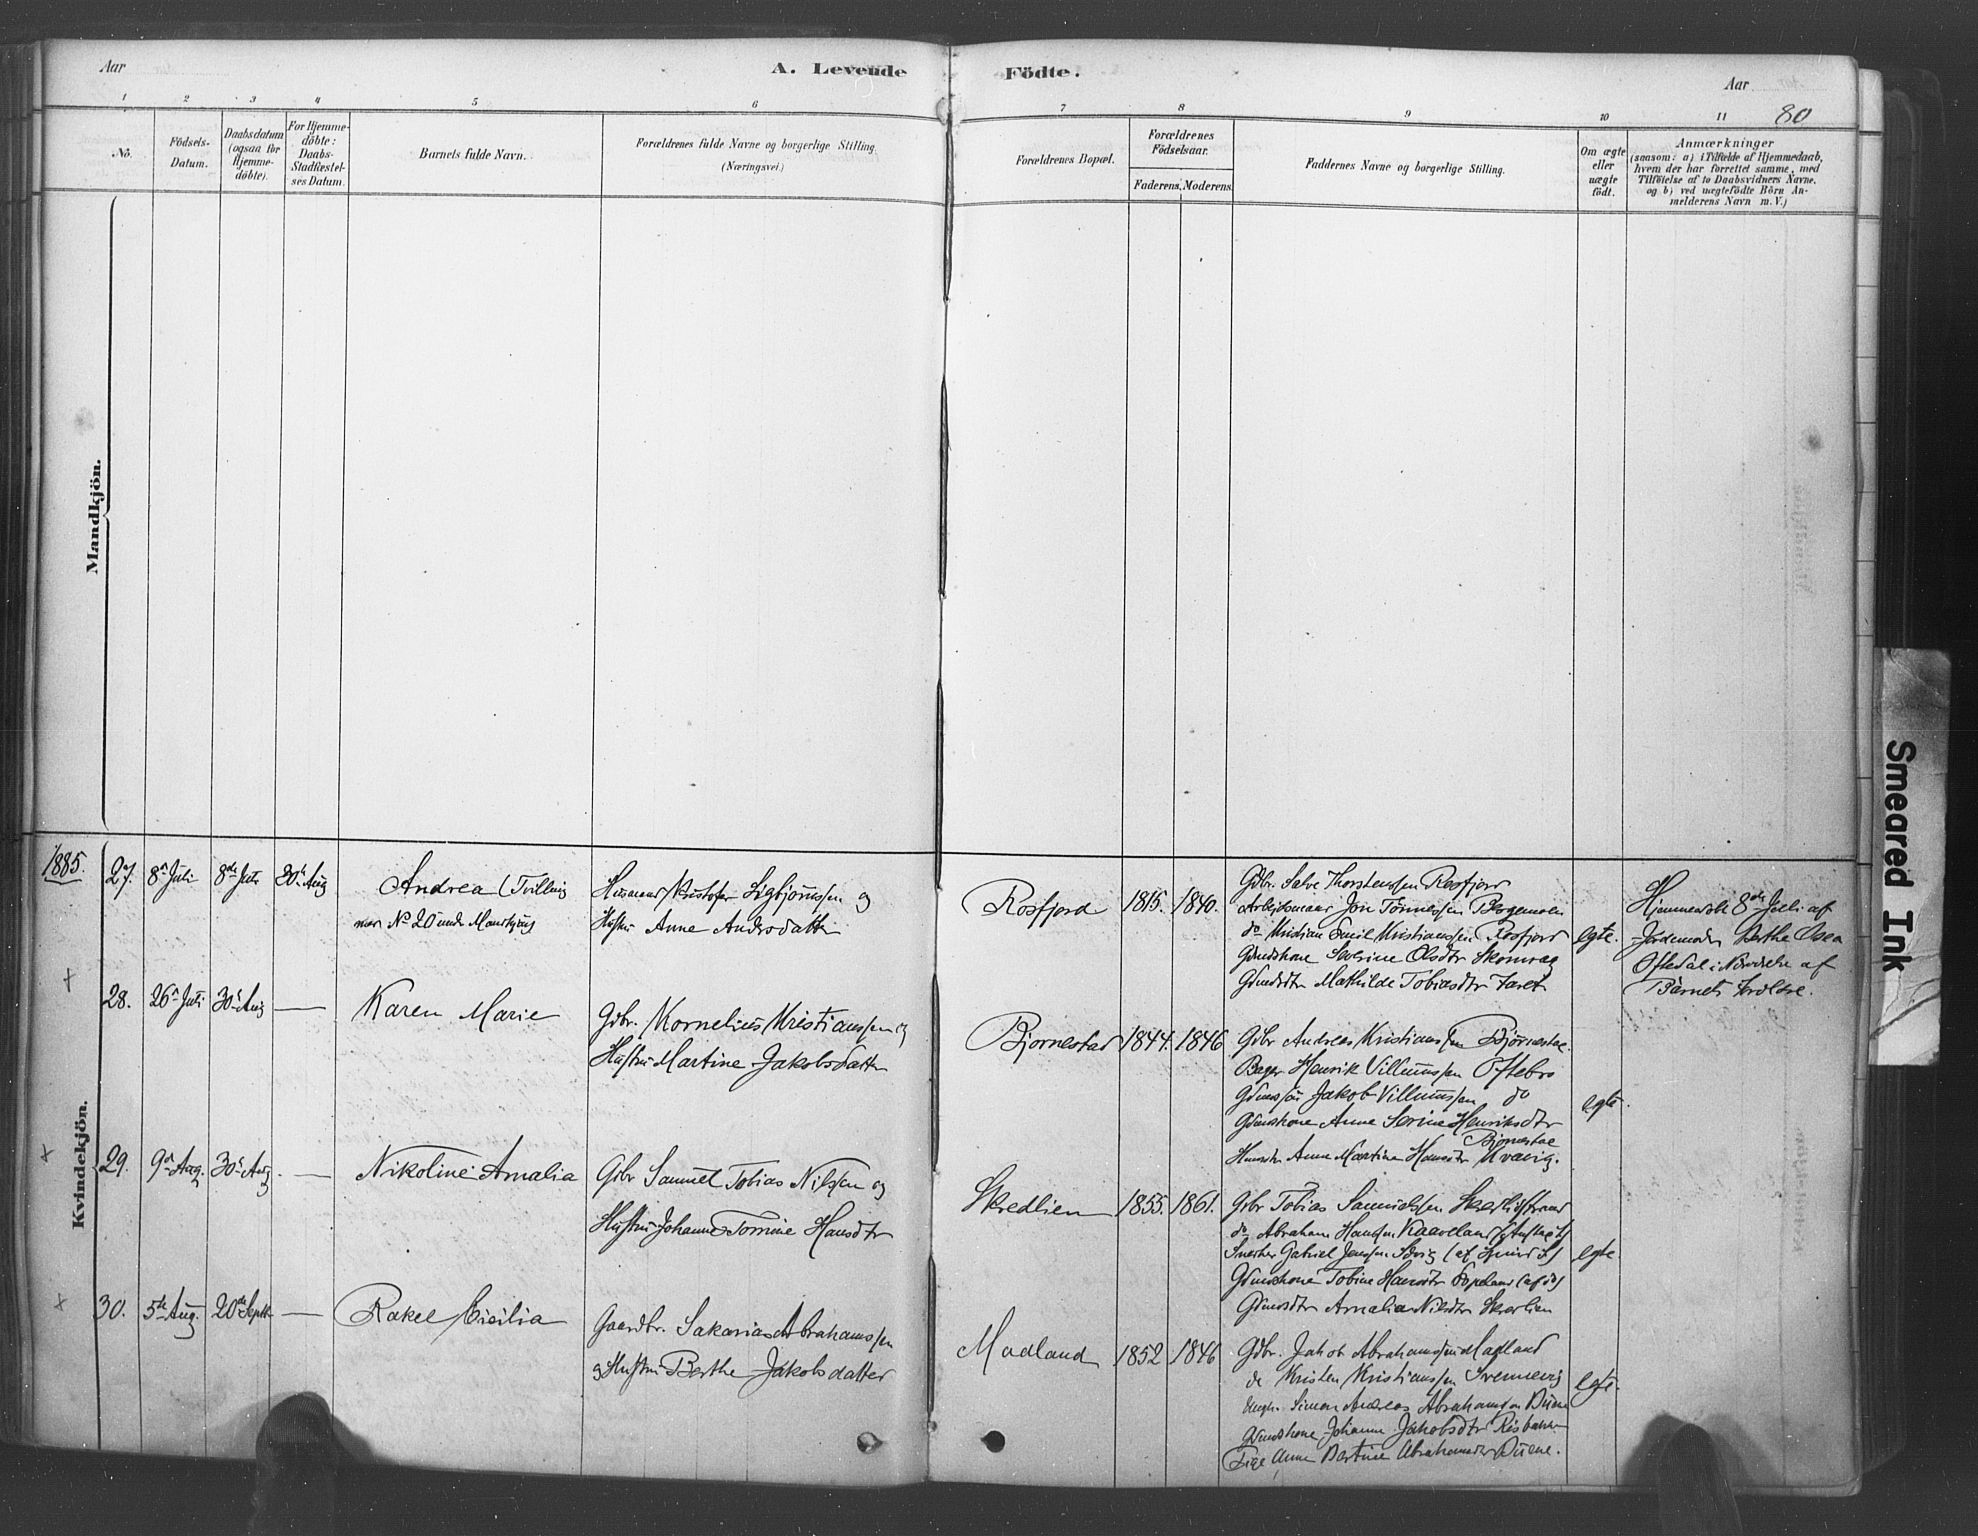 Aar
A. Levende
Födte.
Aar
80
1 2 3 4 5 6 7 8 9 10 11
No.
Födsels-
Datum.
Daabsdatum
(ogsaa for
Hjemme-
döbte).
For Hjemme-
döbte:
Daabs-
Stadfæstel-
ses Datum.
Barnets fulde Navn.
Forældrenes fulde Navne og borgerlige Stilling.
(Næringsvei.)
Forældrenes Bopæl.
Forældrenes
Födselsaar.
Faderens. Moderens.
Faddernes Navne og borgerlige Stilling.
Om ægte
eller
uægte
födt.
Anmærkninger
(saasom: a) i Tilfælde af Hjemmedaab,
hvem der har forrettet samme, med
Tilföielse af to Daabsvidners Navne,
og b) ved uægtefödte Börn An-
melderens Navn m. V.)
Mandkjön.
Kvindekjön.
1885.
27. 8de Juli 8de Juli 30te Aug
Andrea (Tvilling
mer No 20 under Mandkjøn
Husmand Kristofer Sigbjørnssen og
Hustru Anne Andersdatter
Rosfjord
1815. 1840.
Gdbr. Salve Thorstenssen Rosfjord
Arbeidsmand Jon Tønnessen Bergemoen
do Kristian Emil Kristianssen Rosfjord
Gdmdskone Severine Olsdtr Skomrag
Gdmdsdtr Mathilde Tobiasdtr Faret
egte.
Hjemmedøbt 8de Juli af
Jordemoder Berthe Osea
Oftedal i Nærværelse af
Barnets Forældre.
28. 26de Juli 30te Aug —
Karen Marie
Gdbr. Kornelius Kristianssen og
Hustru Martine Jakobsdatter
Bjørnestad
1844. 1846
Gdbr Andreas Kristianssen Bjørnestad.
Bager Henrik Villumssen Oftebro
Gdmdssøn Jakob Villumssen do
Gdmdskone Anne Serine Henriksdtr
Bjørnestad
Husmdtr Anne Martine Hansdtr Kvavig.
egte.
29. 9de Aug. 30te Aug. —
Nikoline Amalia
Gdbr Samuel Tobias Nilssen og
Hustru Johanne Tomine Hansdtr
Skredlien
1855. 1861.
Gdbr Tobias Samuelssen
do Abraham Hanssen Kaaveland
Snedker Gabriel Jenssen
Gdmdskone Tobine Hansdtr
Gdmdsdtr Amalia Nilsdtr Skredlien
egte
30. 5te Aug. 20de Septbr —
Rakel Cicilia
Gaardbr. Sakarias Abrahamssen
og Hustru Berthe Jakobsdatter
Madland
1852 1846
Gdbr. Jakob Abrahamssen Madland
do Kristen Kristianssen Svennevig
Ungk. Simon Andreas Abrahamssen Büene
Gdmdskone Johanne Jakobsdtr Risbakken
Pige Anne Bertine Abrahamsdtr Büene.
egte.
Smeared Ink